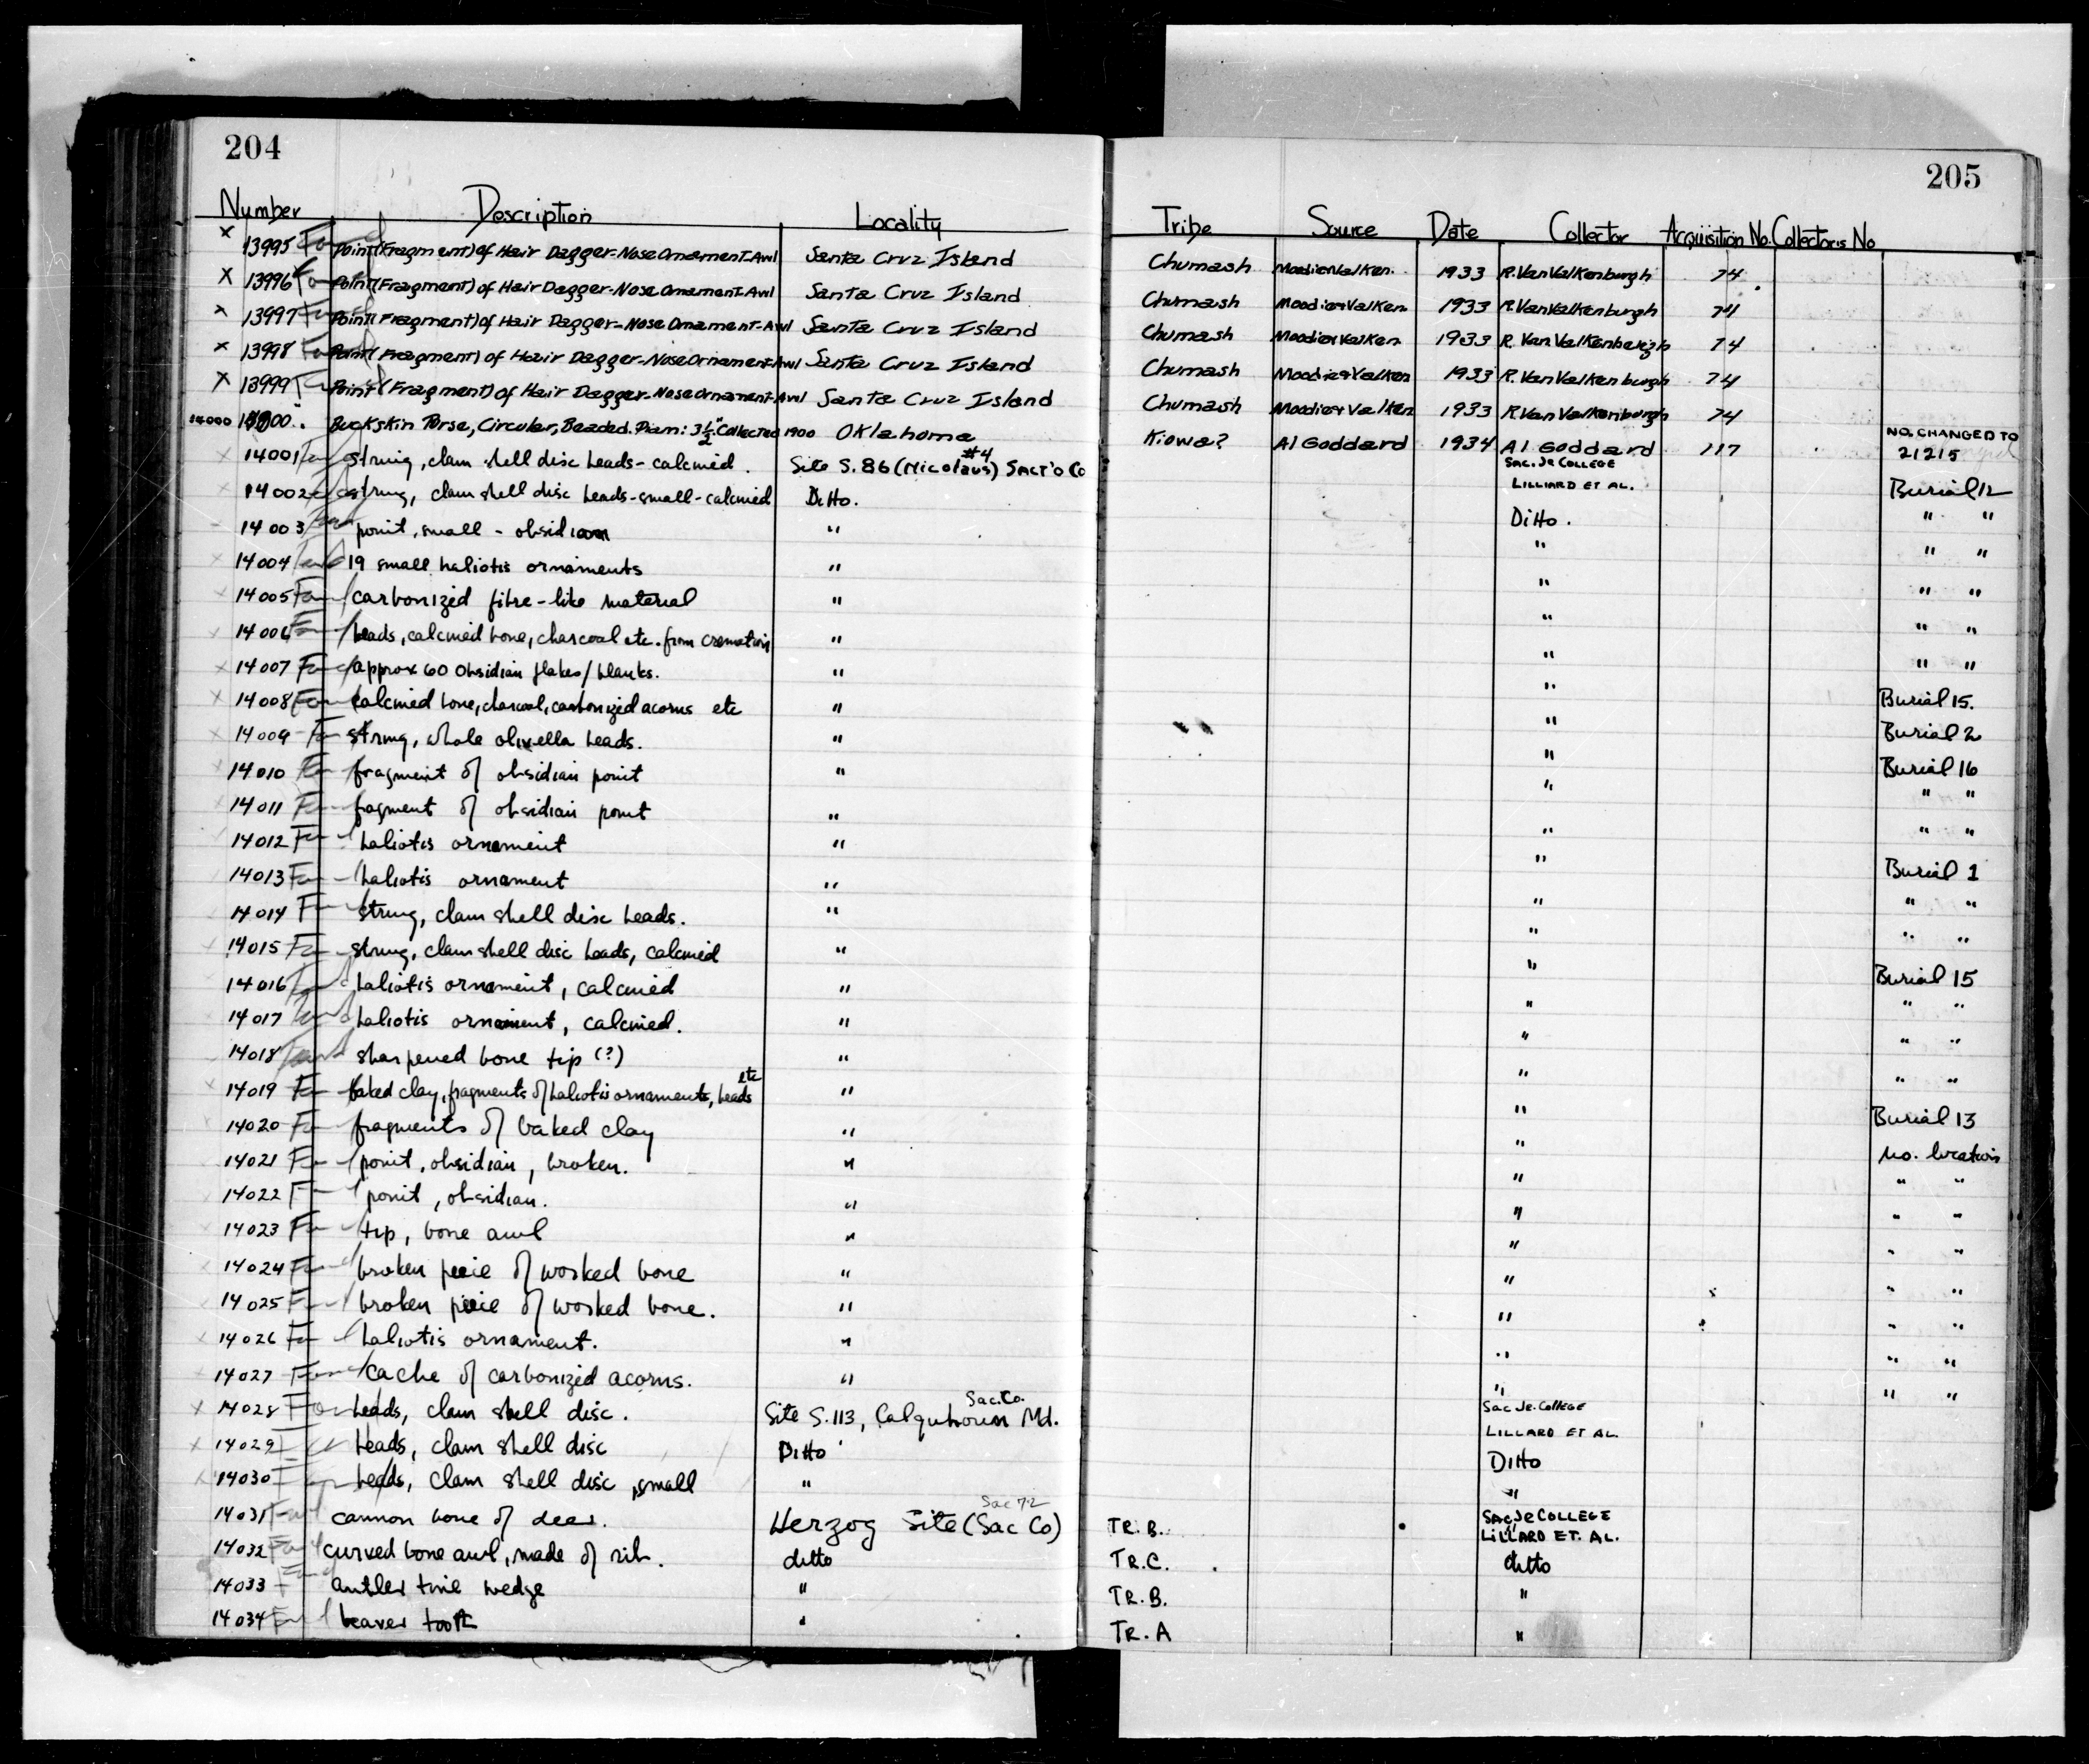 204
205
Number Description Locality Tribe Source Date Collector Acquisition No. Collector's No
x 13995 Found Point (Fragment) of Hair Dagger-Nose Ornament-Awl Santa Cruz Island Chumash Moodie+Valken. 1933 R. Van Valkenburgh 74
x 13996 Point (Fragment) of Hair Dagger-Nose Ornament-Awl Santa Cruz Island Chumash Moodie+Valken 1933 R. Van Valkenburgh 74
x 13997 Point (Fragment) of Hair Dagger-Nose Ornament-Awl Santa Cruz Island Chumash Moodie+Valken 1933 R. Van Valkenburgh 74
x 13998 Point (Fragment) of Hair Dagger-Nose Ornament-Awl Santa Cruz Island Chumash Moodie+Valken 1933 R. Van Valkenburgh 74
x 13999 Point (Fragment) of Hair Dagger-Nose Ornament-Awl Santa Cruz Island Chumash Moodie+Valken 1933 R. Van Valkenburgh 74
14000 Buckskin Purse, Circular, Beaded. Diam: 3 1/2" Collected 1900 Oklahoma Kiowa? Al Goddard 1934 Al Goddard 117 NO. CHANGED TO 21215
14001 string, clam shell disc beads - calcined. Site S. 86 (Nicolaus) #4 SACT'O Co SAC. JR COLLEGE LILLIARD ET AL. Burial 12
14002 string, clam shell disc beads - small - calcined Ditto. Ditto. " "
14003 point, small - obsidian " " " "
14004 19 small haliotis ornaments " " " "
14005 carbonized fibre-like material " " " "
14006 beads, calcined bone, charcoal etc. from cremation " " " "
14007 approx 60 Obsidian flakes/blanks. " " Burial 15.
14008 calcined bone, charcoal, carbonized acorns etc " " Burial 2
14009 string, whole olivella beads. " " Burial 16
14010 fragment of obsidian point " " " "
14011 fragment of obsidian point " " " "
14012 haliotis ornament " " Burial 1
14013 haliotis ornament " " " "
14014 string, clam shell disc beads. " " " "
14015 string, clam shell disc beads, calcined " " Burial 15
14016 haliotis ornament, calcined " " " "
14017 haliotis ornament, calcined. " " " "
14018 sharpened bone tip (?) " " " "
14019 baked clay, fragments of haliotis ornaments, beads etc " " Burial 13
14020 fragments of baked clay " " no. location
14021 point, obsidian, broken. " " " "
14022 point, obsidian. " " " "
14023 tip, bone awl " " " "
14024 broken piece of worked bone " " " "
14025 broken piece of worked bone. " " " "
14026 haliotis ornament. " " " "
14027 cache of carbonized acorns. " " " "
x 14028 beads, clam shell disc. Site S. 113, Calquhoun Md. Sac. Co. Sac Jr. College LILLARD ET AL.
x 14029 beads, clam shell disc Ditto Ditto
14030 beads, clam shell disc, small " "
14031 cannon bone of deer. Herzog Site (Sac Co) Sac 72 TR. B. SAC JR COLLEGE LILLARD ET. AL.
14032 curved bone awl, made of rib. ditto TR. C. ditto
14033 antler tine wedge " TR. B. "
14034 beaver tooth " TR. A "